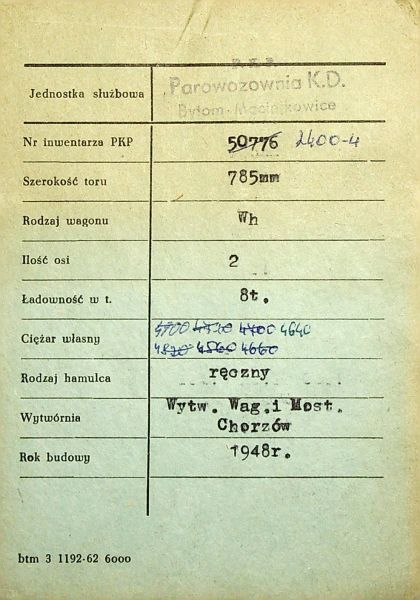 P. K. P.
Parowozownia K.D.
Jednostka służbowa
Bytom-Maciejkowice
Nr inwentarza PKP 50776 2400-4
Szerokość toru 785mm
Rodzaj wagonu Wh
Ilość osi 2
Ładowność w t. 8t.
4700 4720 4700 4640
Ciężar własny
4820 4860 4660
Rodzaj hamulca ręczny
Wytw. Wag.i Most.
Wytwórnia
Chorzów
Rok budowy 1948r.
btm 3 1192-62 6000